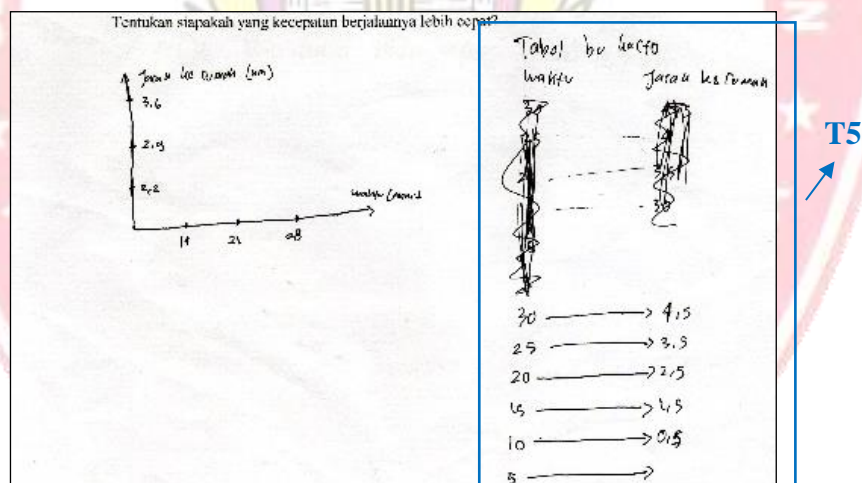 Tentukan siapakah yang kecepatan berjalannya lebih cepat?
Jarak ke rumah (km)
3,6
2,9
2,2
waktu (menit)
14
21
28
Tabel bu
waktu
Jarak ke rumah
30 → 4,5
25 → 3,5
20 → 2,5
15 → 1,5
10 → 0,5
5 →
T5